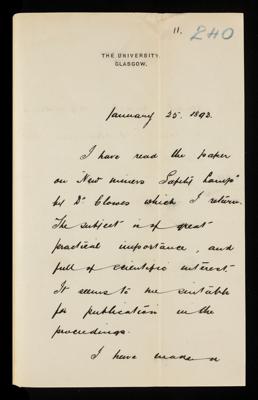 11.
240
THE UNIVERSITY.
GLASGOW.
January 25. 1893.
I have read the paper
on "New miners Safety Lamp"
by Dr Clowes which I return.
The subject is of great
practical importance, and
full of scientific interest.
It seems to me suitable
for publication in the
proceedings.
I have made a